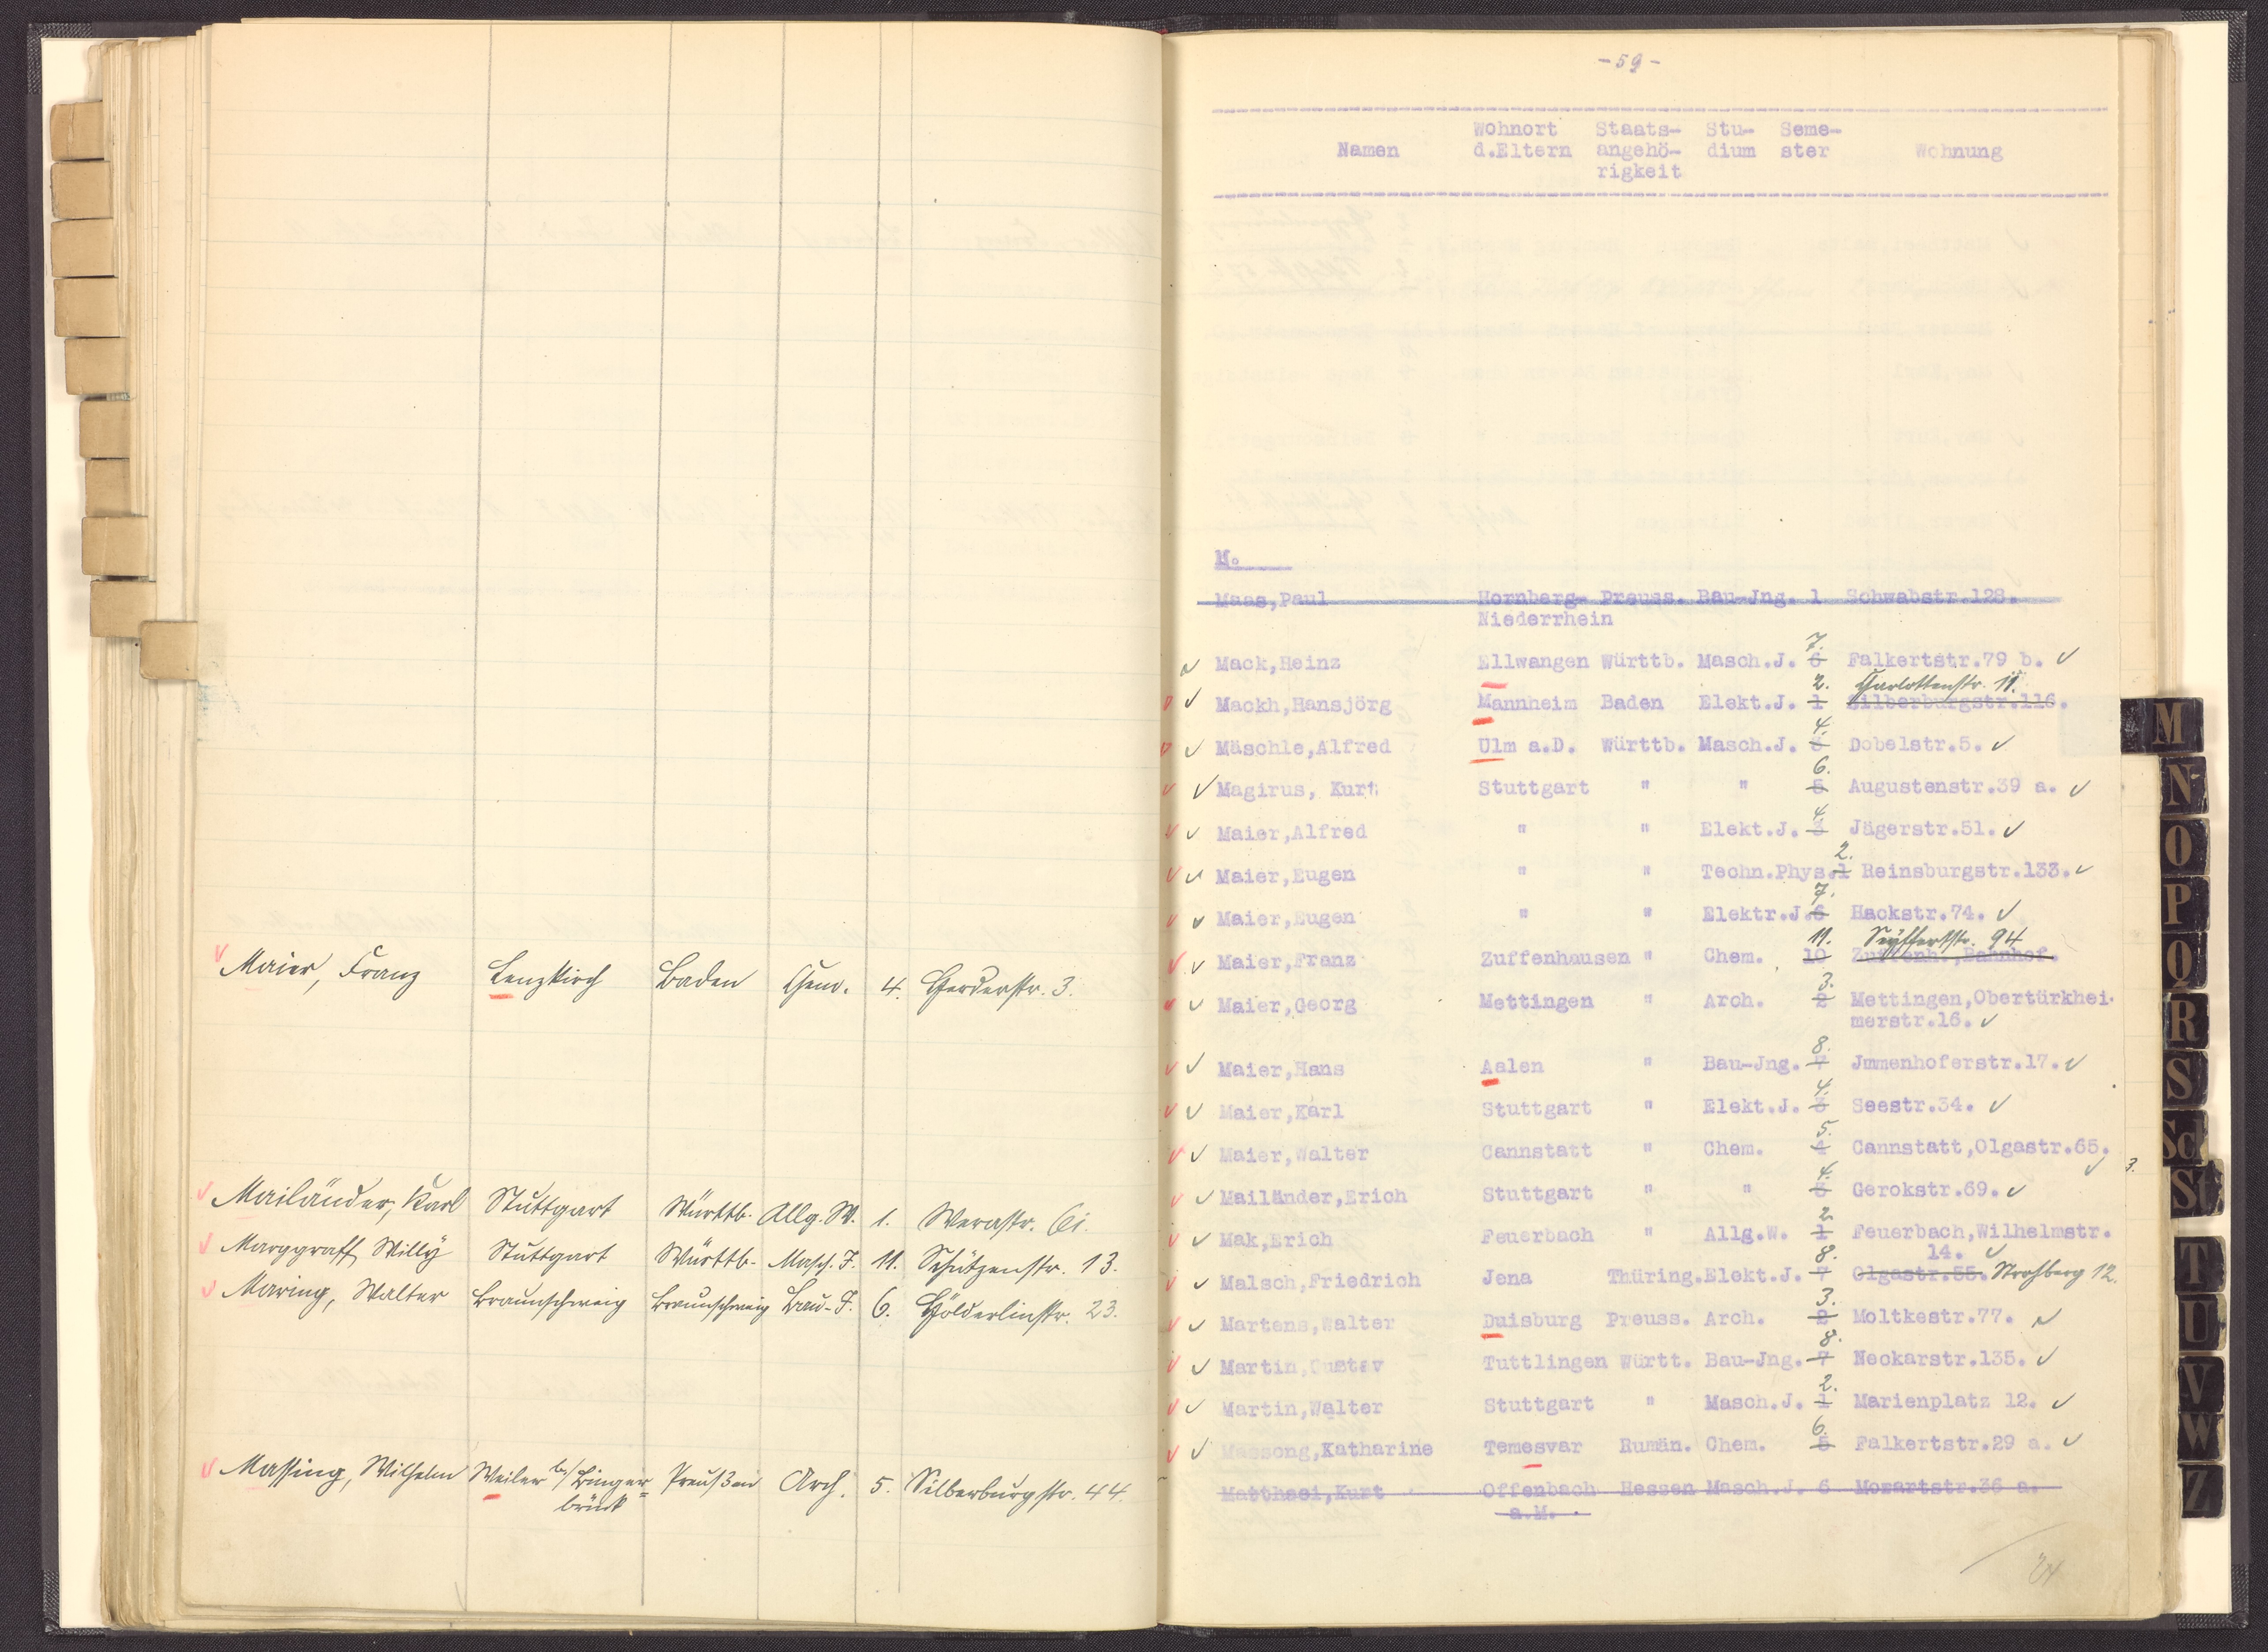 Maier, Franz Lenzkirch Baden Chem. 4. Herderstr. 3.
Mailänder, Karl Stuttgart Württb. Allg. W. 1. Werastr. 61.
Marggraff, Willy Stuttgart Württb. Masch. J. 11. Schützenstr. 13.
Maring, Walter Braunschweig Braunschweig Bau-J. 6. Hölderlinstr. 23.
Massing, Wilhelm Weiler b/ Binger= Preußen Arch. 5. Silberburgstr. 44.
brück
-59-
Wohnort Staats- Stu- Seme-
Namen d.Eltern angehö- dium ster Wohnung
rigkeit
M.
Maas,Paul Hornberg- Preuss. Bau-Jng. 1 Schwabstr.128.
Niederrhein
7.
Mack,Heinz Ellwangen Württb. Masch.J. 6 Falkertstr.79 b.
2. Charlottenstr. 11.
Mackh,Hansjörg Mannheim Baden Elekt.J. 1 Silberburgstr.116.
4.
Mäschle,Alfred Ulm a.D. Württb. Masch.J. 3 Dobelstr.5.
6.
Magirus, Kurt Stuttgart " " 5 Augustenstr.39 a.
4.
Maier,Alfred " " Elekt.J. 3 Jägerstr.51.
2.
Maier,Eugen " " Techn.Phys.1 Reinsburgstr.133.
7.
Maier,Eugen " " Elektr.J.6 Hackstr.74.
11. Seyfferstr. 94
Maier,Franz Zuffenhausen " Chem. 10 Zuffenh.,Bahnhof.
3.
Maier,Georg Mettingen " Arch. 2 Mettingen,Obertürkhei-
merstr.16.
8.
Maier,Hans Aalen " Bau-Jng. 7 Jmmenhoferstr.17.
4.
Maier,Karl Stuttgart " Elekt.J. 3 Seestr.34.
5.
Maier,Walter Cannstatt " Chem. 4 Cannstatt,Olgastr.65.
4. 3.
Mailänder,Erich Stuttgart " " 3 Gerokstr.69.
2.
Mak,Erich Feuerbach " Allg.W. 1 Feuerbach,Wilhelmstr.
8. 14.
Malsch,Friedrich Jena Thüring.Elekt.J. 7 Olgastr.55. Strohberg 12.
3.
Martens,Walter Duisburg Preuss. Arch. 2 Moltkestr.77.
8.
Martin,Gustav Tuttlingen Württ. Bau-Jng. 7 Neckarstr.135.
2.
Martin,Walter Stuttgart " Masch.J. 1 Marienplatz 12.
6.
Massong,Katharine Temesvar Rumän. Chem. 5 Falkertstr.29 a.
Matthaei,Kurt Offenbach Hessen Masch.J. 6 Mozartstr.36 a.
a.M.
M
N
O
P
Q
R
S
Sch
St
T
U
V
W
Z